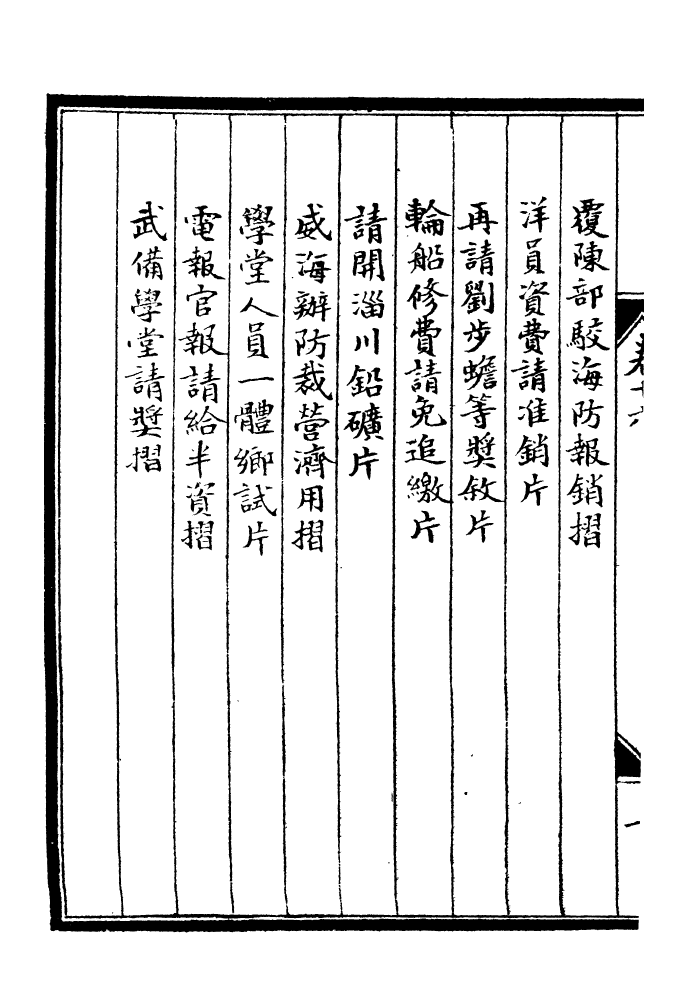 覆陳部駮海防報銷摺
洋員資費請准銷片
再請劉步蟾等獎敘片
輪船修費請免追繳片
請開淄川鉛礦片
威海辦防裁營濟用摺
學堂人員一體鄉試片
電報官報請給半資摺
武備學堂請獎摺
卷十六
一